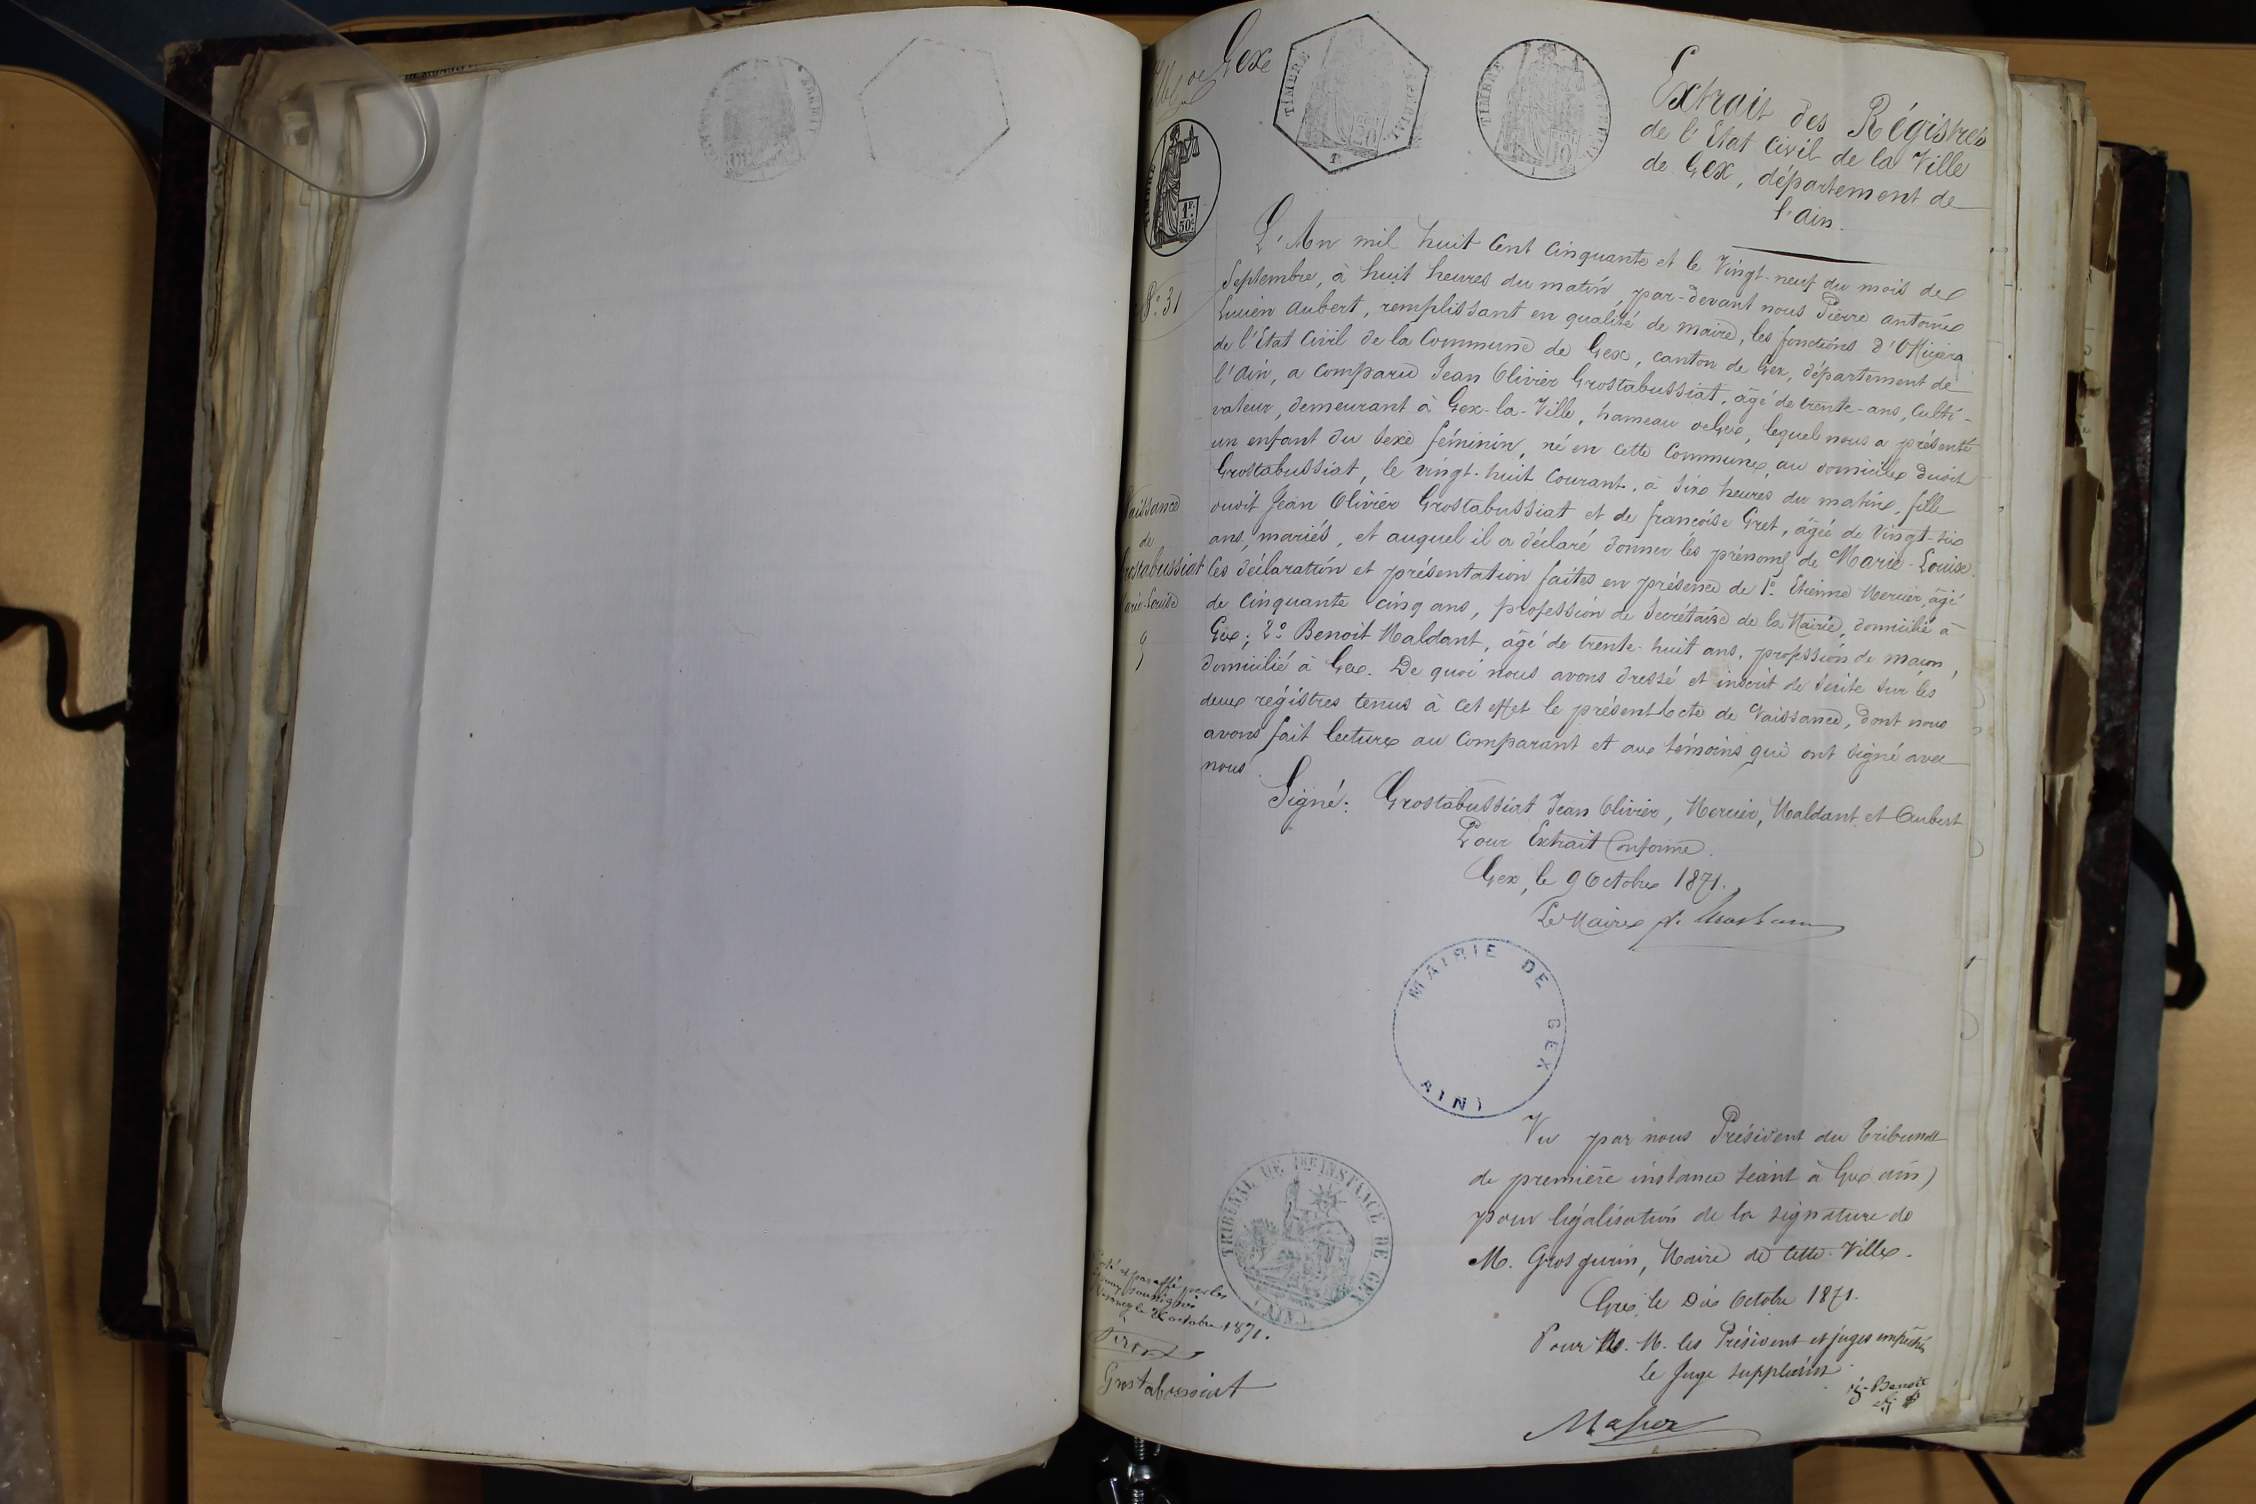 Gex
TIMBRE
TIMBRE
1F.
50c.
Extrait des Régistres
de l'Etat Civil de la Ville
de Gex, département de
l'Ain.
L'An mil huit Cent Cinquante et le Vingt-neuf du mois de
Septembre, à huit heures du matin, par-devant nous Pierre Antoine
Lucien Aubert, remplissant en qualité de maire, les fonctions d'Officier
de l'Etat Civil de la Commune de Gex, canton de Gex, département de
l'Ain, a comparu Jean Olivier Grostabussiat, âgé de trente-ans, Culti-
vateur, demeurant à Gex-la-Ville, hameau de Gex, lequel nous a présenté
un enfant du sexe féminin, né en cette Commune, au domicile dudit
Grostabussiat, le vingt-huit Courant, à six heures du matin, fille
dudit Jean Olivier Grostabussiat et de françoise Gret, âgée de Vingt-six
ans, mariés, et auquel il a déclaré donner les prénoms de Marie-Louise.
Ces déclaration et présentation faites en présence de 1o. Etienne Mercier, âgé
de Cinquante cinq ans, profession de Secrétaire de la Mairie, domicilié à
Gex; 2o. Benoit Maldant, âgé de trente-huit ans, profession de maçon,
domicilié à Gex. De quoi nous avons dressé et inscrit de suite sur les
deux régistres tenus à cet effet le présent Acte de Naissance, dont nous
avons fait lecture au Comparant et aux témoins qui ont signé avec
nous.
Signé: Grostabussiat Jean Olivier, Mercier, Maldant et Aubert
Pour Extrait Conforme.
Gex, le 9 Octobre 1871.
Le Maire
No. 31
Naissance
de
Grostabussiat
Marie-Louise
9
MAIRIE DE GEX
(AIN)
Vu par nous Président du Tribunal
de première instance séant à Gex (Ain)
pour légalisation de la signature de
M. Grosgurin, Maire de cette Ville.
Gex, le Dix Octobre 1871.
Pour M. M. les Président et juges empêchés
Le Juge suppléant
TRIBUNAL DE 1RE INSTANCE DE GEX
(AIN)
paraffé par les
soussignés
octobre 1871.
Grostabussiat